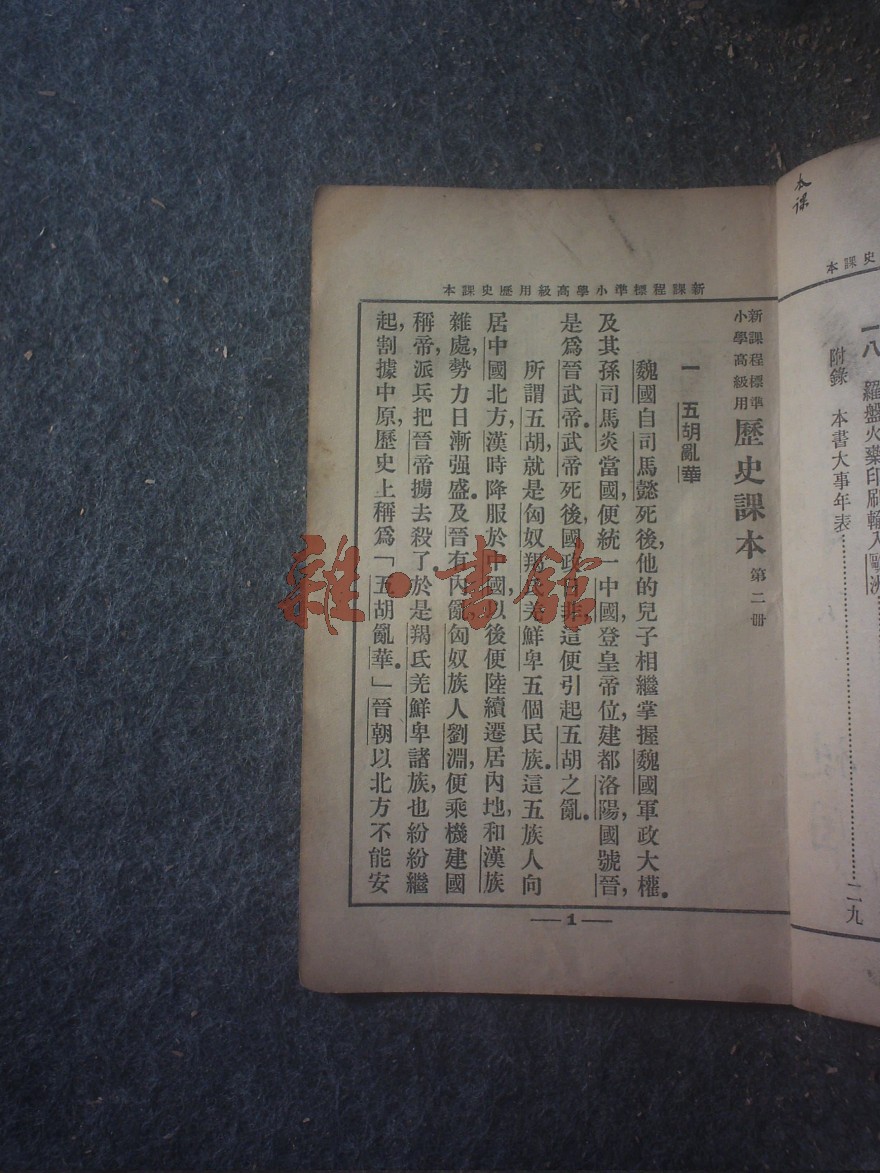 本課
本課史
一八 羅盤火藥印刷輸入歐洲
附錄 本書大事年表……二九
本課史歷用級高學小準標程課新
新課程標準
小學高級用
歷史課本 第二冊
一 五胡亂華
魏國自司馬懿死後,他的兒子相繼掌握魏國軍政大權。
及其孫司馬炎當國,便統一中國,登皇帝位,建都洛陽,國號晉,
是爲晉武帝。武帝死後,國政日非,這便引起五胡之亂。
所謂五胡,就是匈奴羯氏羌鮮卑五個民族。這五族人向
居中國北方,漢時降服於中國,以後便陸續遷居內地,和漢族
雜處,勢力日漸强盛。及晉有內亂,匈奴族人劉淵,便乘機建國
稱帝,派兵把晉帝擄去殺了。於是羯氏羌鮮卑諸族,也紛紛繼
起,割據中原,歷史上稱爲「五胡亂華。」晉朝以北方不能安
—1—
雜·書館